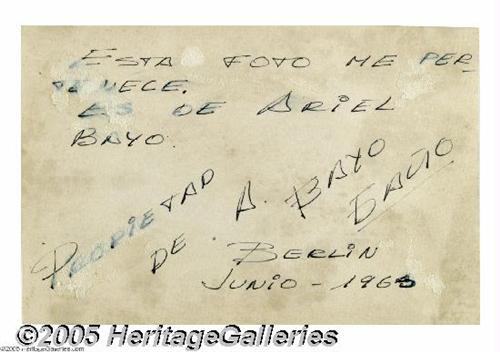 ESTA FOTO ME PER-
TENECE.
ES DE ARIEL
BAYO.
PROPIETAD
DE A. BAYO
BERLIN
JUNIO - 196
©2005 HeritageGalleries
©2005 HeritageGalleries.com